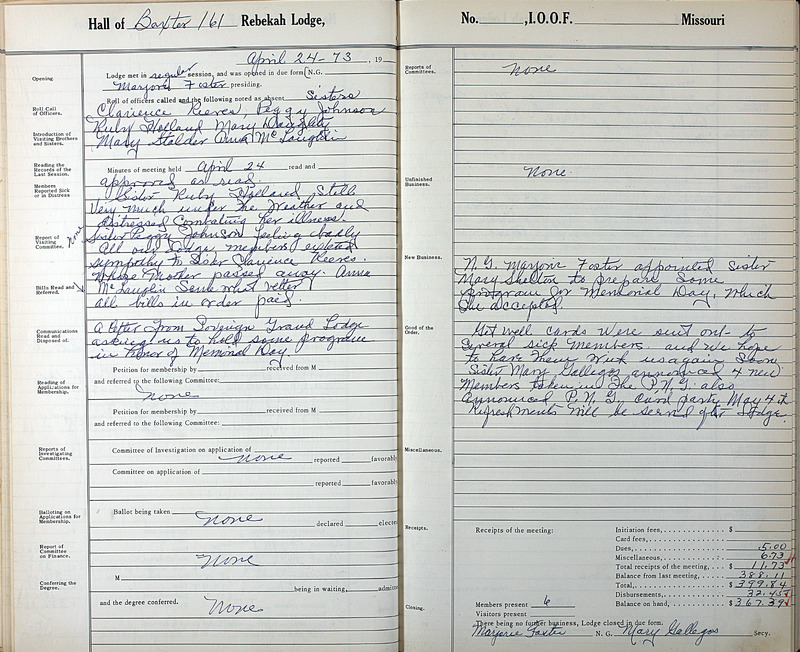 Hall of Baxter 161 Rebekah Lodge,
April 24-73, 19
Opening.
Lodge met in regular session, and was opened in due form N.G.
Marjorie Foster presiding.
Roll Call of Officers.
Roll of officers called and the following noted as absent Sisters
Clarience Reeves, Peggy Johnson
Introduction of Visiting Brothers and Sisters.
Ruby Holland Mary Daugaty
Mary Stalder Anna McLaughlin
Reading the Records of the Last Session.
Minutes of meeting held April 24 read and
approved as read.
Members Reported Sick or in Distress
Sister Ruby Holland, Still
Very much under the weather and
distressed Combating her illness.
Report of Visiting Committee. None
Sister Peggy Johnson feeling badly
All our Lodge members extend
sympathy to Sister Clarience Reeves.
Whose Mother passed away. Anna
Bills Read and Referred.
McLauglin Some what better
all bills in order paid.
Communications Read and Disposed of.
A letter From Soverign Grand Lodge
asking us to hold some program
in honor of Memorial Day.
Reading of Applications for Membership.
Petition for membership by received from M
and referred to the following Committee:
None
Petition for membership by received from M
and referred to the following Committee:
Reports of Investigating Committees.
Committee of Investigation on application of
None reported favorabl
Committee on application of
reported favorabl
Balloting on Applications for Membership.
Ballot being taken
None declared elected
Report of Committee on Finance.
None
Conferring the Degree.
M
being in waiting, admitted
and the degree conferred. None
No. , I.O.O.F. Missouri
Reports of Committees.
None
Unfinished Business.
None.
New Business.
N.G. Marjorie Foster appointed Sister
Mary Shelton to prepare some
program for Memorial Day, Which
She accepted.
Good of the Order.
Get well cards were sent out to
several sick members. and we hope
to have them with us again Soon
Sister Mary Gallegos announced 4 new
Members taken in the P.N.G. also
Announced P.N.G. card party May 4th
Refreshments Will be served after Lodge.
Miscellaneous.
Receipts.
Receipts of the meeting:
Initiation fees, $
Card fees,
Dues, 5.00
Miscellaneous, 6.73
Total receipts of the meeting, $ 11.73
Balance from last meeting, 388.11
Total, $ 399.84
Disbursements, 32.45
Balance on hand, $ 367.39
Members present 6
Visitors present
Closing.
There being no further business, Lodge closed in due form.
Marjorie Foster N. G. Mary Gallegos Secy.